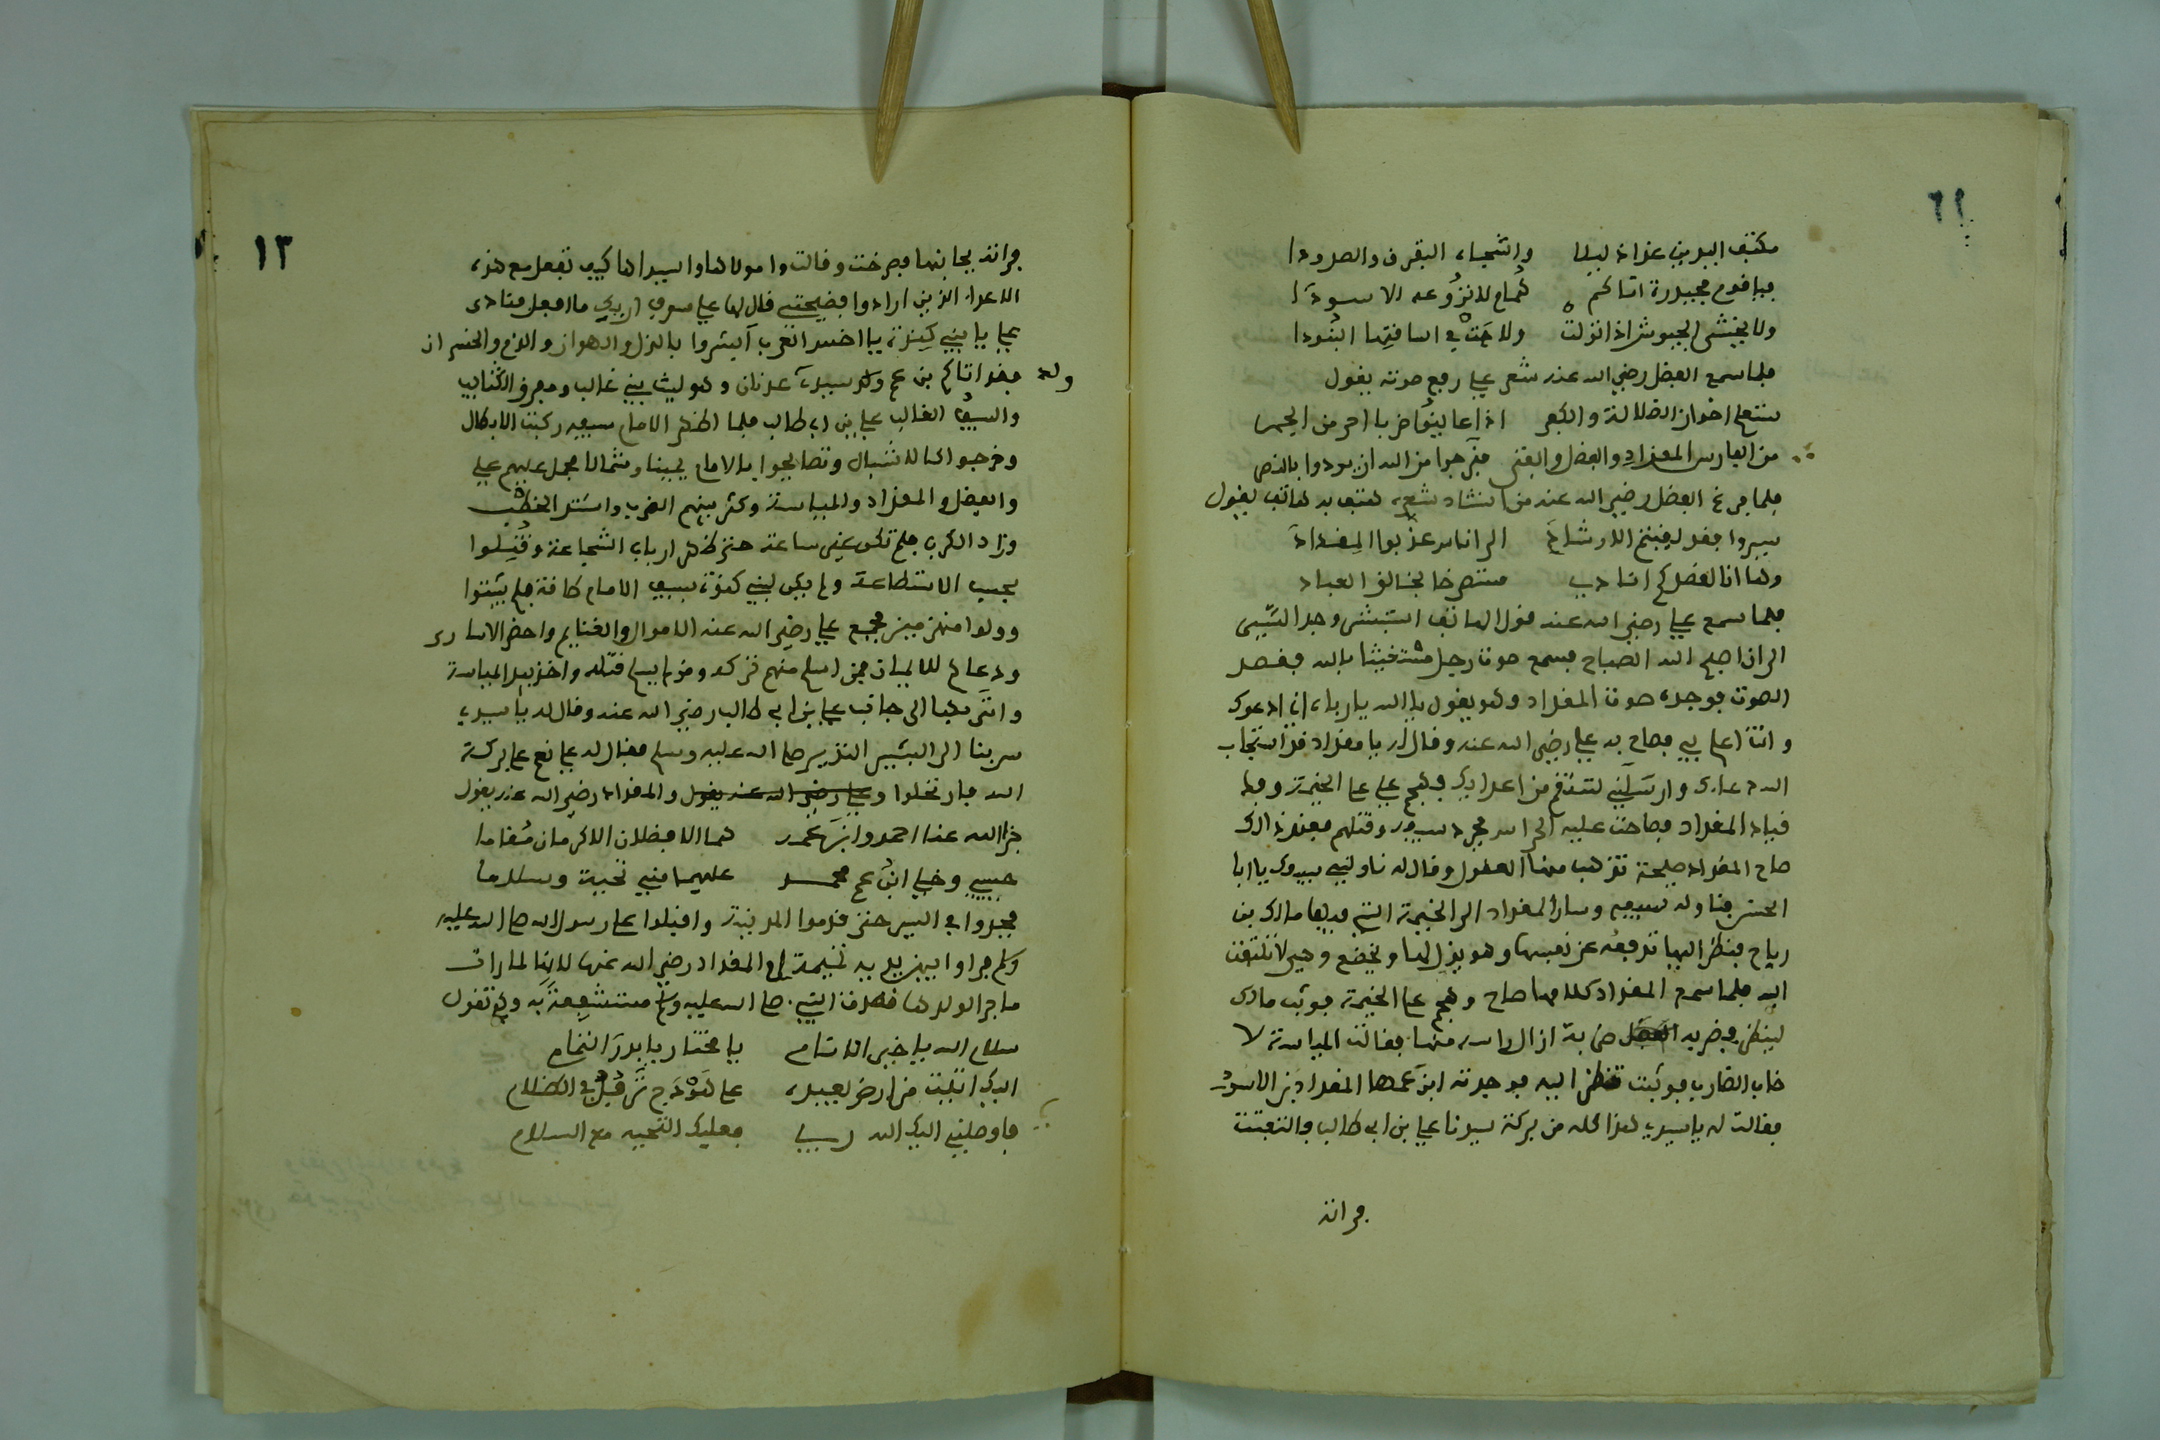 فراته
وانتجاء البقرف والصدودا
فيا قوم محيدرة اتاكم كماح للنزوعه الاسودا
ولا يخشى الجيوش اذا نزلت ولا في البنودا
فلما سمع الفضل رضي الله عنه شعر علي رفع صوته يقول
ستعلم اخوان الضلالة والكفر اذا عاينوا ضربا احر من الجمر
من الفارس المقداد والفضل والفتى من الله ان يودوا بالنصر
فلما فرغ الفضل رضي الله عنه من انشاد شعره هتف به هاتف يقول
سيروا فقد لقيتم الارشادا الى اناس عذبوا المقدادا
وها انا الفضل كم انادي منتصرخا بخالق العباد
فلما سمع علي رضي الله عنه قول الهاتف استبشر وجد السير
الى ان اصبح الله الصباح فسمع صوت رجل مستغيثا بالله فقصد
الصوت فوجده صوت المقداد وهو يقول يا الله يا رباه اني ادعوك
وانت اعلم بي فصاح به علي رضي الله عنه وقال له يا مقداد قد استجاب
الله دعاك وارسلني لننتقم من اعدايك وهجم علي على الخيمة وقطع
قياد المقداد فصاحت عليه الحراس فجرد سيفه وقتلهم فعند ذلك
صاح المقداد صيحة تذهب منها العقول وقال له ناولني سيفك يا ابا
الحسن فناوله سيفه وسار المقداد الى الخيمة التي فيها مالك بن
رياح فنظر اليها تدفعه عن نفسها وهو يذل لها ويخضع وهي لا تلتفت
اليه فلما سمع المقداد كلامها صاح وهجم على الخيمة فوثب مالك
لينظر فضربه ضربة ازال راسه منها فقالت المياسة لا
خاب الضارب فوثبت تنظر اليه فوجدته ابن عمها المقداد بن الاسود
فقالت له يا سيدي هذا كله من بركة سيدنا علي بن ابي طالب فالتفتت
فراته
١٣
فراته بجانبها فصرخت وقالت وا مولاها وا سيداها كيف تفعل مع هذه
الاعداء الذين ارادوا فضيحتي قال لها علي سوف اريكي ما افعل فنادى
علي يا بني كندة يا اخس العرب ابشروا بالذل والهوان والذم والخسران
فقد اتاكم بن عم ولد سيد عدنان وهو ليث بني غالب ومفرق الكتايب
ولد
والسيف الغالب علي بن ابي طالب فلما اظهر الامام سيفه ركبت الابطال
وخرجوا كالاشبال وتصايحوا بالامام يمينا وشمالا فحمل عليهم علي
والفضل والمقداد والمياسة وكثر بينهم الضرب واشتد الخطب
وزاد الكرب فلم تكن غير ساعة حتى ظهر ارباب الشجاعة وقتلوا
بحسب الاستطاعة ولم يكن لبني كندة بسيف الامام طاقة فلم يثبتوا
وولوا منهزمين فجمع علي رضي الله عنه الاموال والغنايم واحضر الاسارى
ودعاهم للايمان فمن اسلم منهم تركه ومن لم يسلم قتله واخذ بيد المياسة
واتى بها الى جانب علي بن ابي طالب رضي الله عنه وقال له يا سيدي
سر بنا الى البشير النذير صلى الله عليه وسلم فقال له علي نعم على بركة
الله فارتحلوا وعلي رضي الله عنه يقول والمقداد رضي الله عنه يقول
جزا الله عنا احمدا وابن عمه هما الافضلان الاكرمان مقاما
حبيبي وخلي ابن عم محمد عليهما مني تحية وسلاما
فجدوا في السير حتى قدموا المدينة واقبلوا على رسول الله صلى الله عليه
المقداد رضي الله عنها لانها لما رات
ما جرا لولدها قصدت النبي صلى الله عليه وسلم مستشفعة به وهي تقول
سلام الله يا خير الانام يا مختار يا بدر التمام
اليك اتيت من ارض بعيدة على هودج ترفل في الظلام
فاوصلني اليك الله ربي فعليك التحيه مع السلام